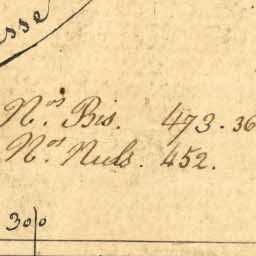 sse
N.os Bis. 473.36
N.os Nuls. 452.
300